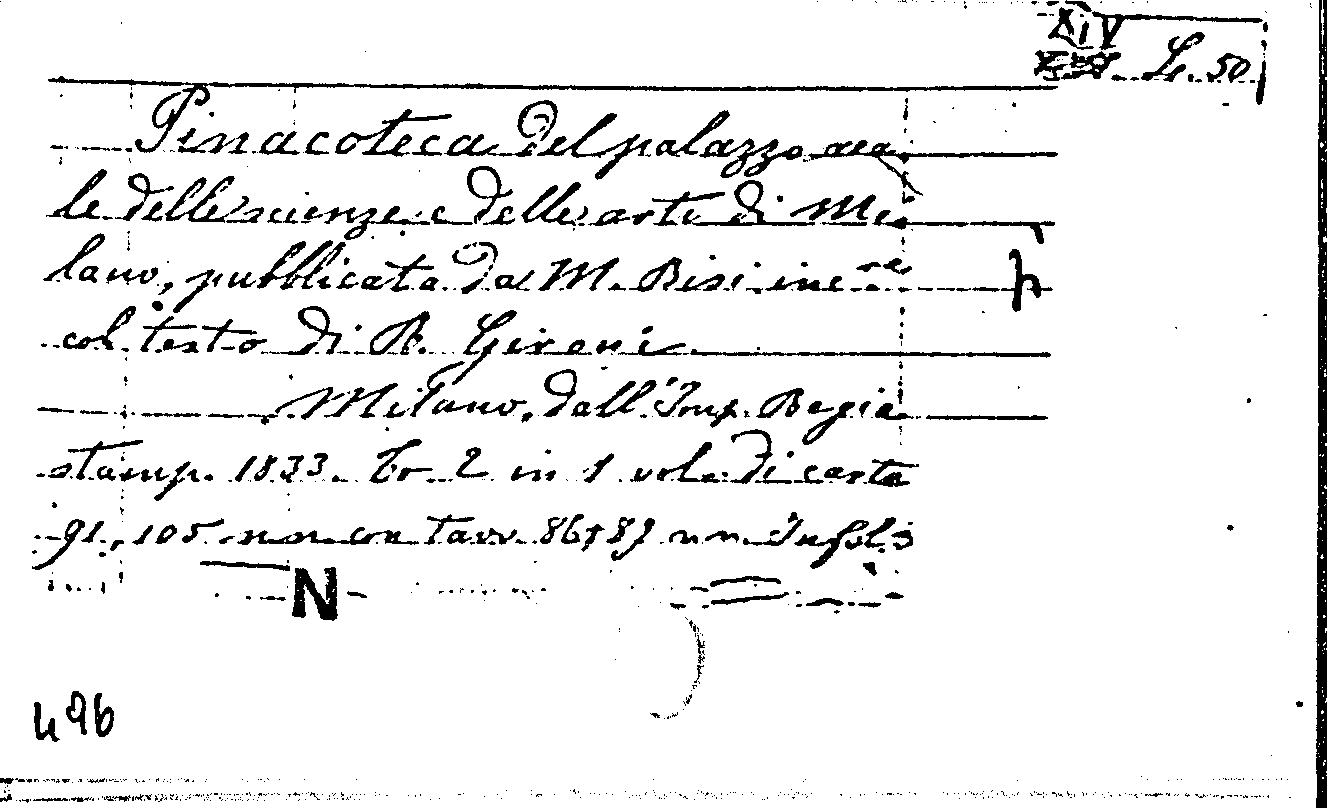 XIV
Le. 50
Pinacoteca del palazzo rea
le delle scienze e delle arti di Mi
lano, pubblicata da M. Bisi inc.re
col testo di R. Gironi
Milano, dall' Imp. Regia
stamp. 1833. To 2 in 1 vol. di carte
91, 105 nn con tavv. 86+87 nn. In fol.
N
496